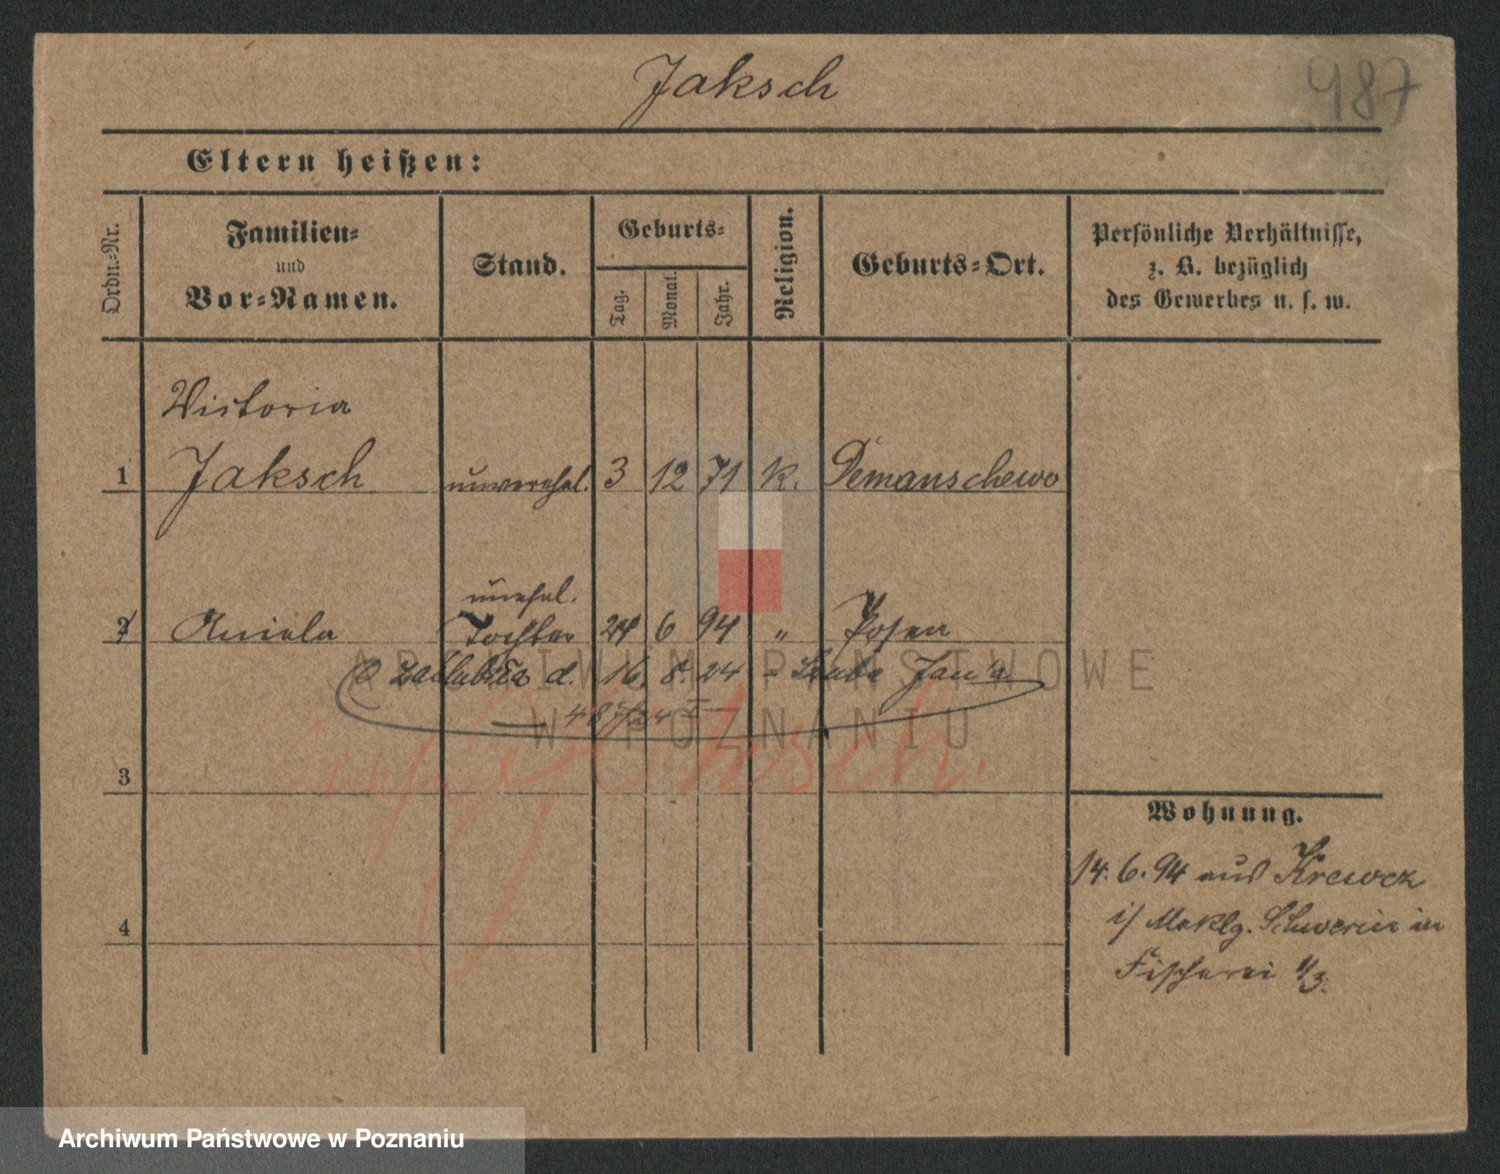 Jaksch
487
Eltern heißen:
Ordn.-Nr.
Familien-
und
Vor-Namen.
Stand.
Geburts-
Tag.
Monat.
Jahr.
Religion.
Geburts-Ort.
Persönliche Verhältnisse,
z. B. bezüglich
des Gewerbes u. s. w.
Victoria
1 Jaksch unverehel. 3 12 71 K. Demanschewo
unehel.
2 Aniela Tochter 24 6 94 " Posen
d. 16. 8. 24 -
3
4
Wohnung.
14. 6. 94 aus Krewcz
i/ Meklg. Schwerin in
Fischerei 4/3.
ARCHIWUM PAŃSTWOWE
W POZNANIU
Archiwum Państwowe w Poznaniu